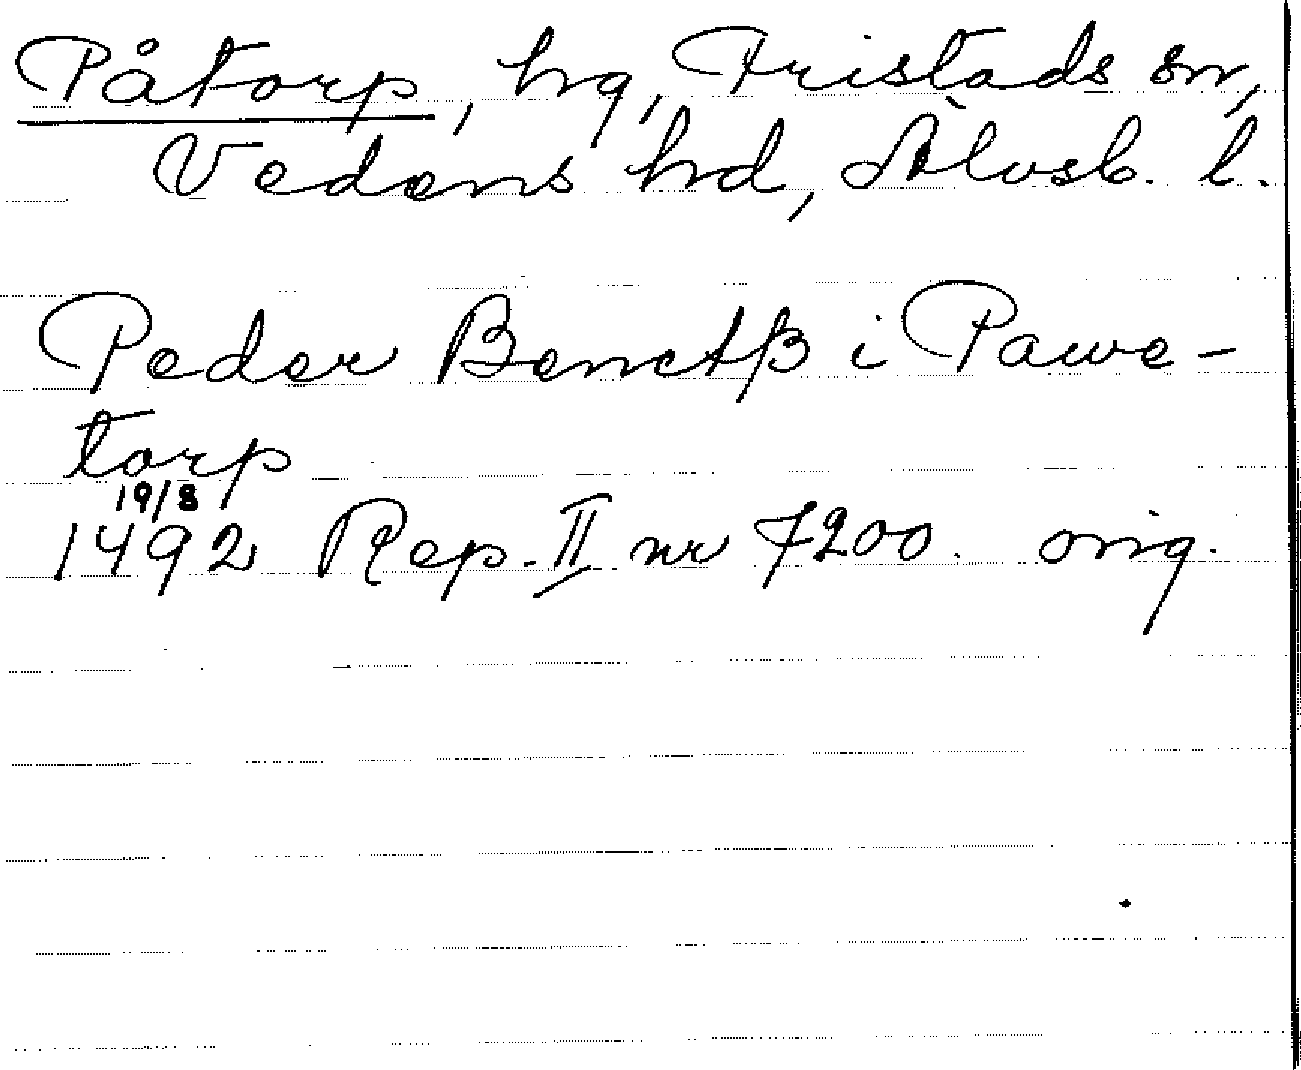 Påtorp, hg, Fristads sn,
Vedens hd, Älvsb. l.
Peder Benctß i Pawe-
torp
19/8
1492 Rep. II nr 7200. orig.